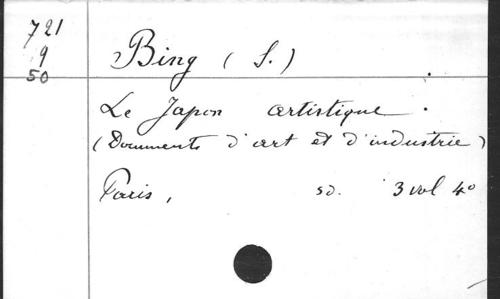 721
9
50
Bing (S.)
Le Japon artistique.
(Documents d'art et d'industrie)
Paris, sd. 3 vol 4o